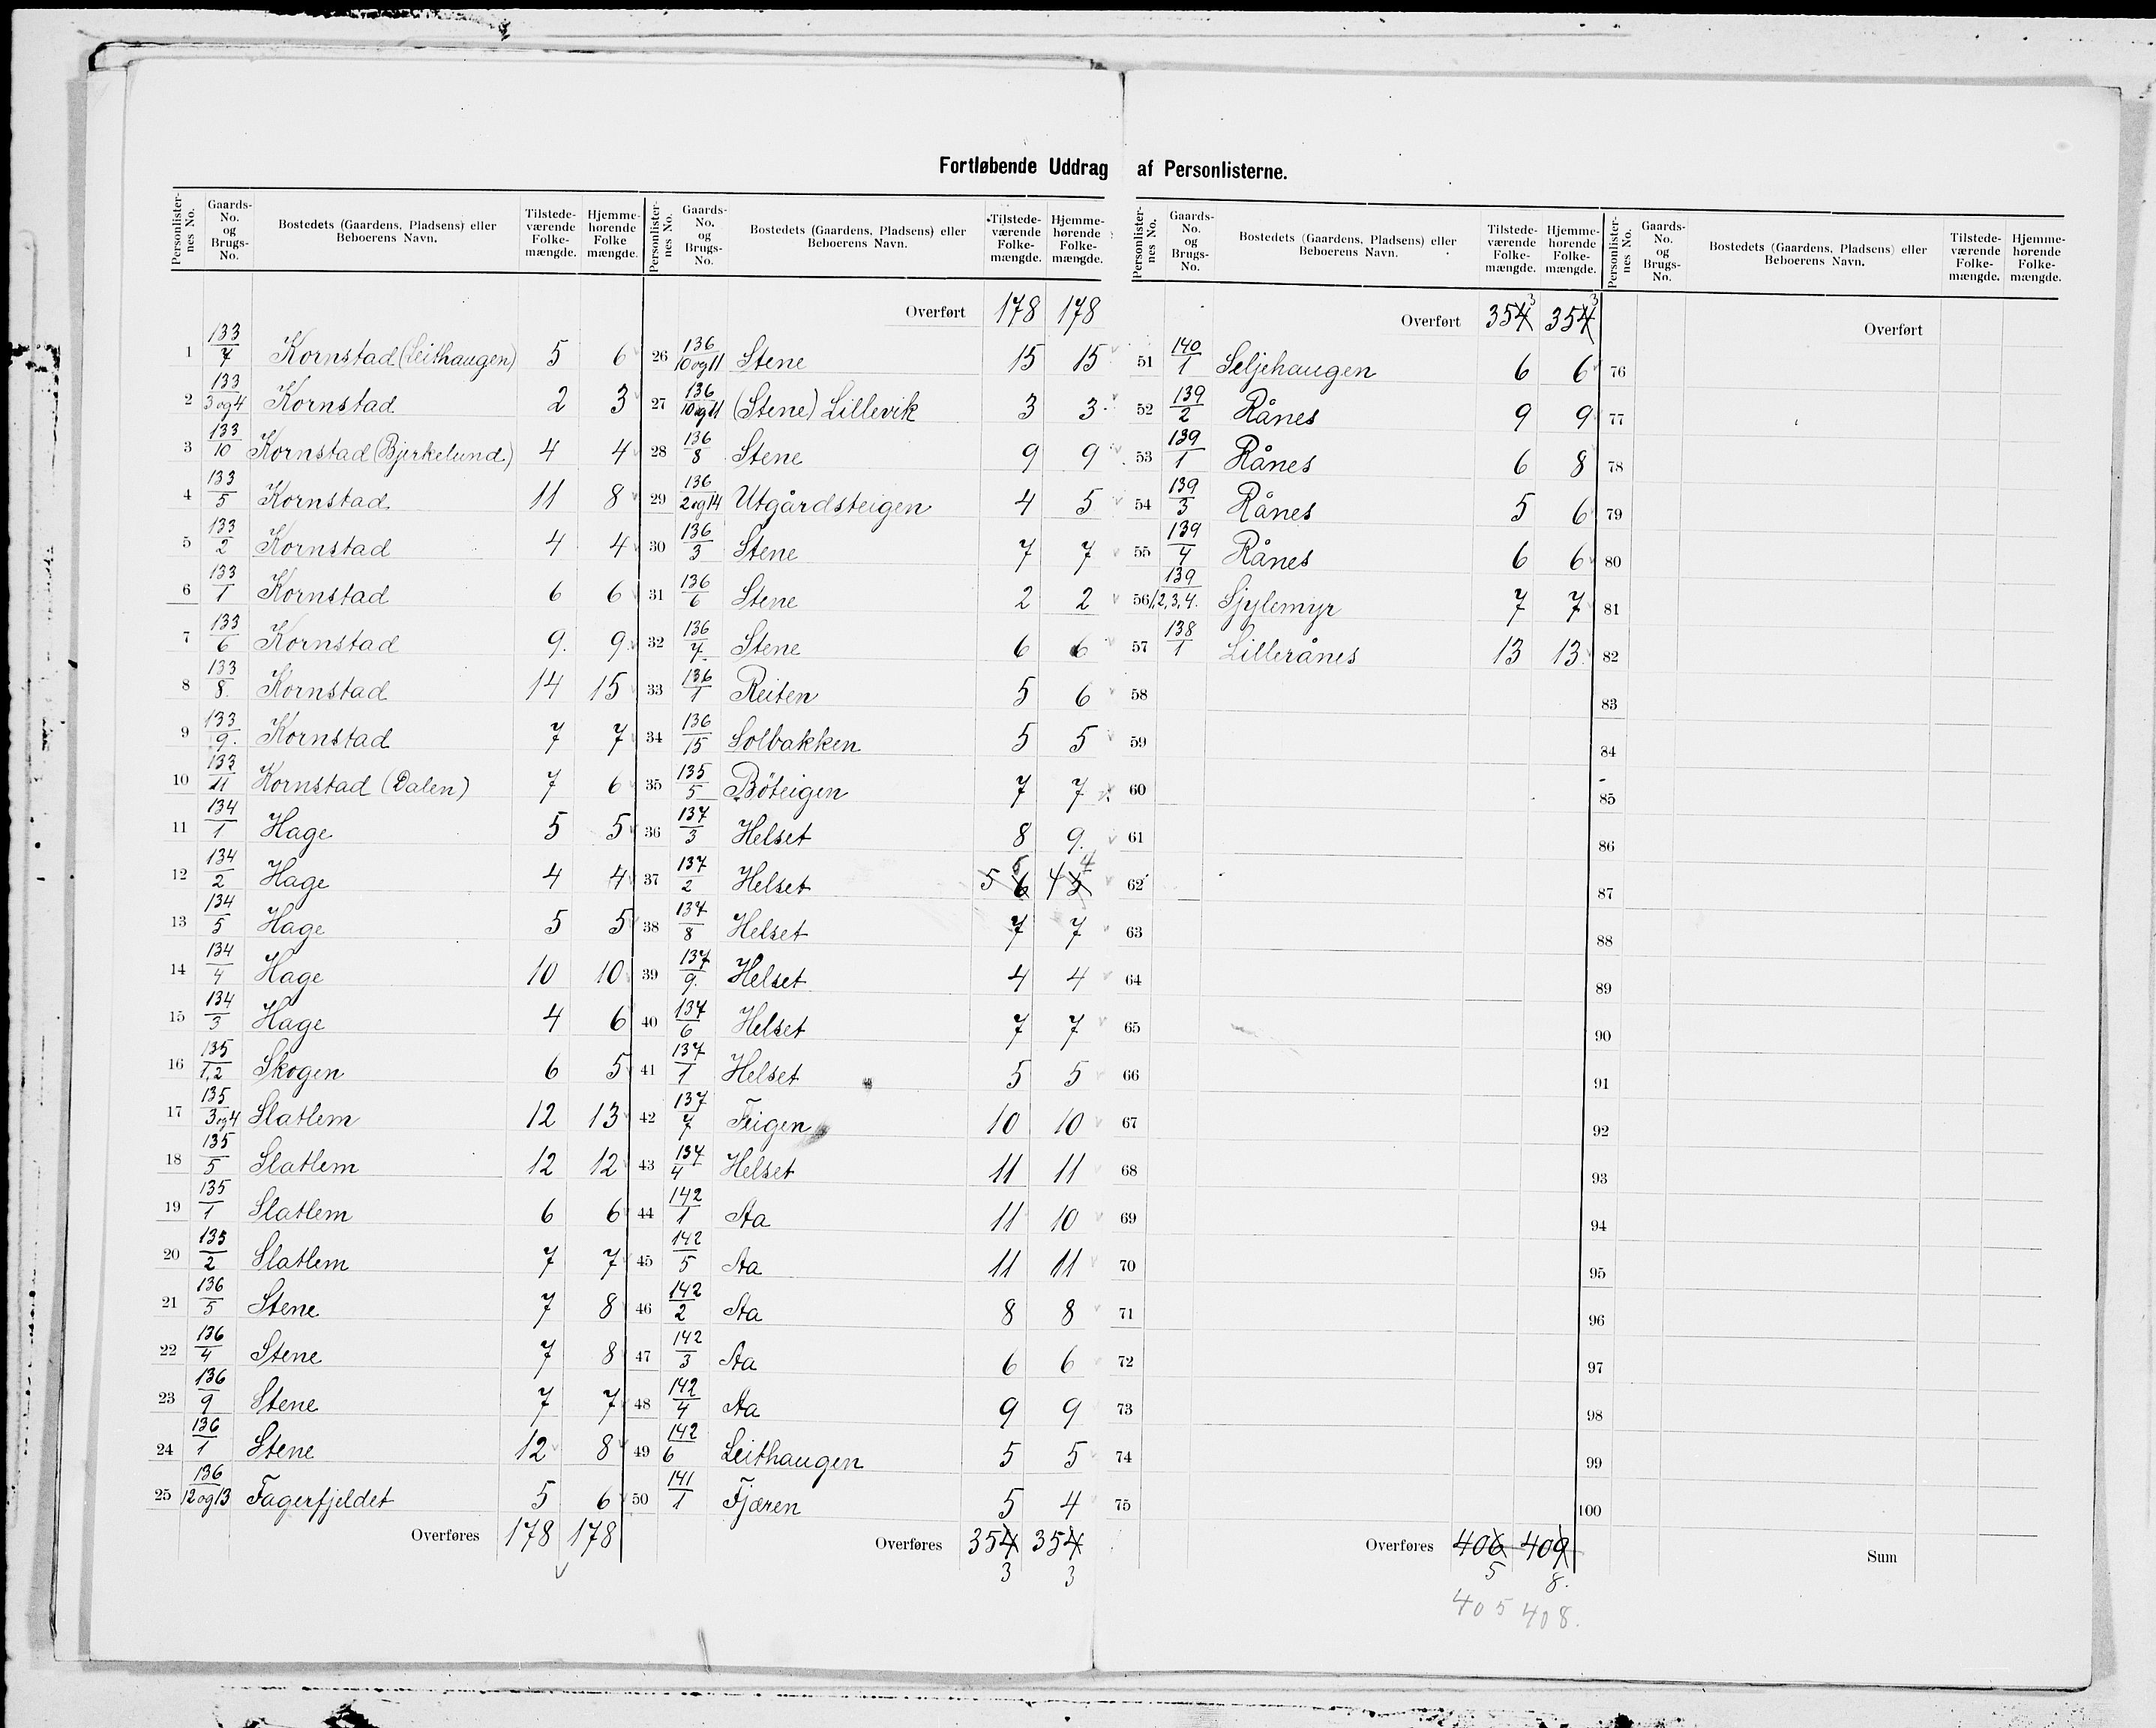 Fortløbende Uddrag af Personlisterne.
Personlister-nes No. Gaards-No. og Brugs-No. Bostedets (Gaardens, Pladsens) eller Beboerens Navn. Tilstede-værende Folke-mængde. Hjemme-hørende Folke mængde.
1 133/7 Kornstad (Leithaugen) 5 6
2 133/3 og 4 Kornstad 2 3
3 133/10 Kornstad (Bjerkelund) 4 4
4 133/5 Kornstad 11 8
5 133/2 Kornstad 4 4
6 133/1 Kornstad 6 6
7 133/6 Kornstad 9. 9
8 133/8. Kornstad 14 15
9 133/9. Kornstad 7 7
10 133/11 Kornstad (Dalen) 7 6
11 134/1 Hage 5 5
12 134/2 Hage 4 4
13 134/5 Hage 5 5
14 134/4 Hage 10 10
15 134/3 Hage 4 6
16 135/1,2 Skogen 6 5
17 135/3 og 4 Slatlem 12 13
18 135/5 Slatlem 12 12
19 135/1 Slatlem 6 6
20 135/2 Slatlem 7 7
21 136/5 Stene 7 8
22 136/4 Stene 7 8
23 136/9 Stene 7 7
24 136/1 Stene 12 8
25 136/12 og 13 Fagerfjeldet 5 6
Overføres 178 178
Personlister-nes No. Gaards-No. og Brugs-No. Bostedets (Gaardens, Pladsens) eller Beboerens Navn. Tilstede-værende Folke-mængde. Hjemme-hørende Folke-mængde.
Overført 178 178
26 136/10 og 11 Stene 15 15
27 136/10 og 11 (Stene) Lillevik 3 3
28 136/8 Stene 9 9
29 136/2 og 14 Utgårdsteigen 4 5
30 136/3 Stene 7 7
31 136/6 Stene 2 2
32 136/7. Stene 6 6
33 136/1 Reiten 5 6
34 136/15 Solbakken 5 5
35 135/5 Böteigen 7 7
36 137/3 Helset 8 9.
37 137/2 Helset 5 6 4 5 4
38 137/8 Helset 7 7
39 137/9. Helset 4 4
40 137/6 Helset 7 7
41 137/1 Helset 5 5
42 137/7 Teigen 10 10
43 137/4 Helset 11 11
44 142/1 Aa 11 10
45 142/5 Aa 11 11
46 142/2 Aa 8 8
47 142/3 Aa 6 6
48 142/4 Aa 9 9
49 142/6 Leithaugen 5 5
50 141/1 Fjæren 5 4
Overføres 354 354
3 3
Personlister-nes No. Gaards-No. og Brugs-No. Bostedets (Gaardens, Pladsens) eller Beboerens Navn. Tilstede-værende Folke-mængde. Hjemme-hørende Folke-mængde.
Overført 354 3 354 3
51 140/1 Seljehaugen 6 6
52 139/2 Rånes 9 9
53 139/1 Rånes 6 8
54 139/3 Rånes 5 6
55 139/4 Rånes 6 6
56 139/1,2,3,4. Sjylemyr 7 7
57 138/1 Lillerånes 13 13
58
59
60
61
62
63
64
65
66
67
68
69
70
71
72
73
74
75
Overføres 406 409
5 8.
405 408.
Personlister-nes No. Gaards-No. og Brugs-No. Bostedets (Gaardens, Pladsens) eller Beboerens Navn. Tilstede-værende Folke-mængde. Hjemme-hørende Folke-mængde.
Overført
76
77
78
79
80
81
82
83
84
85
86
87
88
89
90
91
92
93
94
95
96
97
98
99
100
Sum